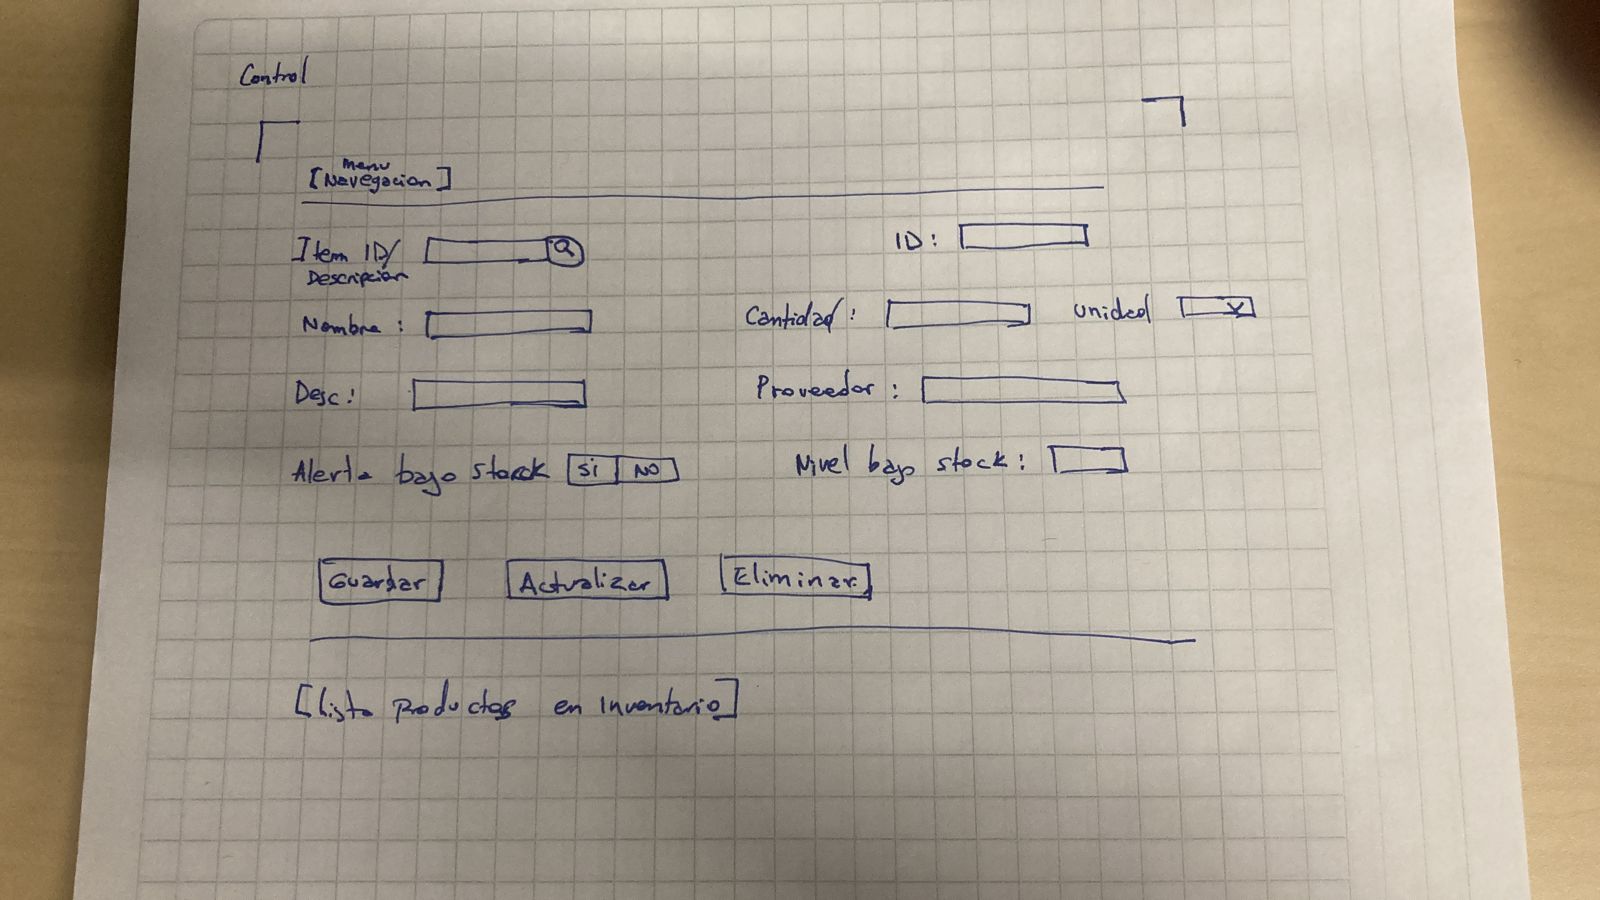 Control
Menu
[Navegacion]
Item ID/
Descripcion
ID:
Nombre :
Cantidad :
Unidad
Desc:
Proveedor :
Alerta bajo stock
Si
NO
Nivel bajo stock :
Guardar
Actualizar
Eliminar
[Lista Productos en Inventario]